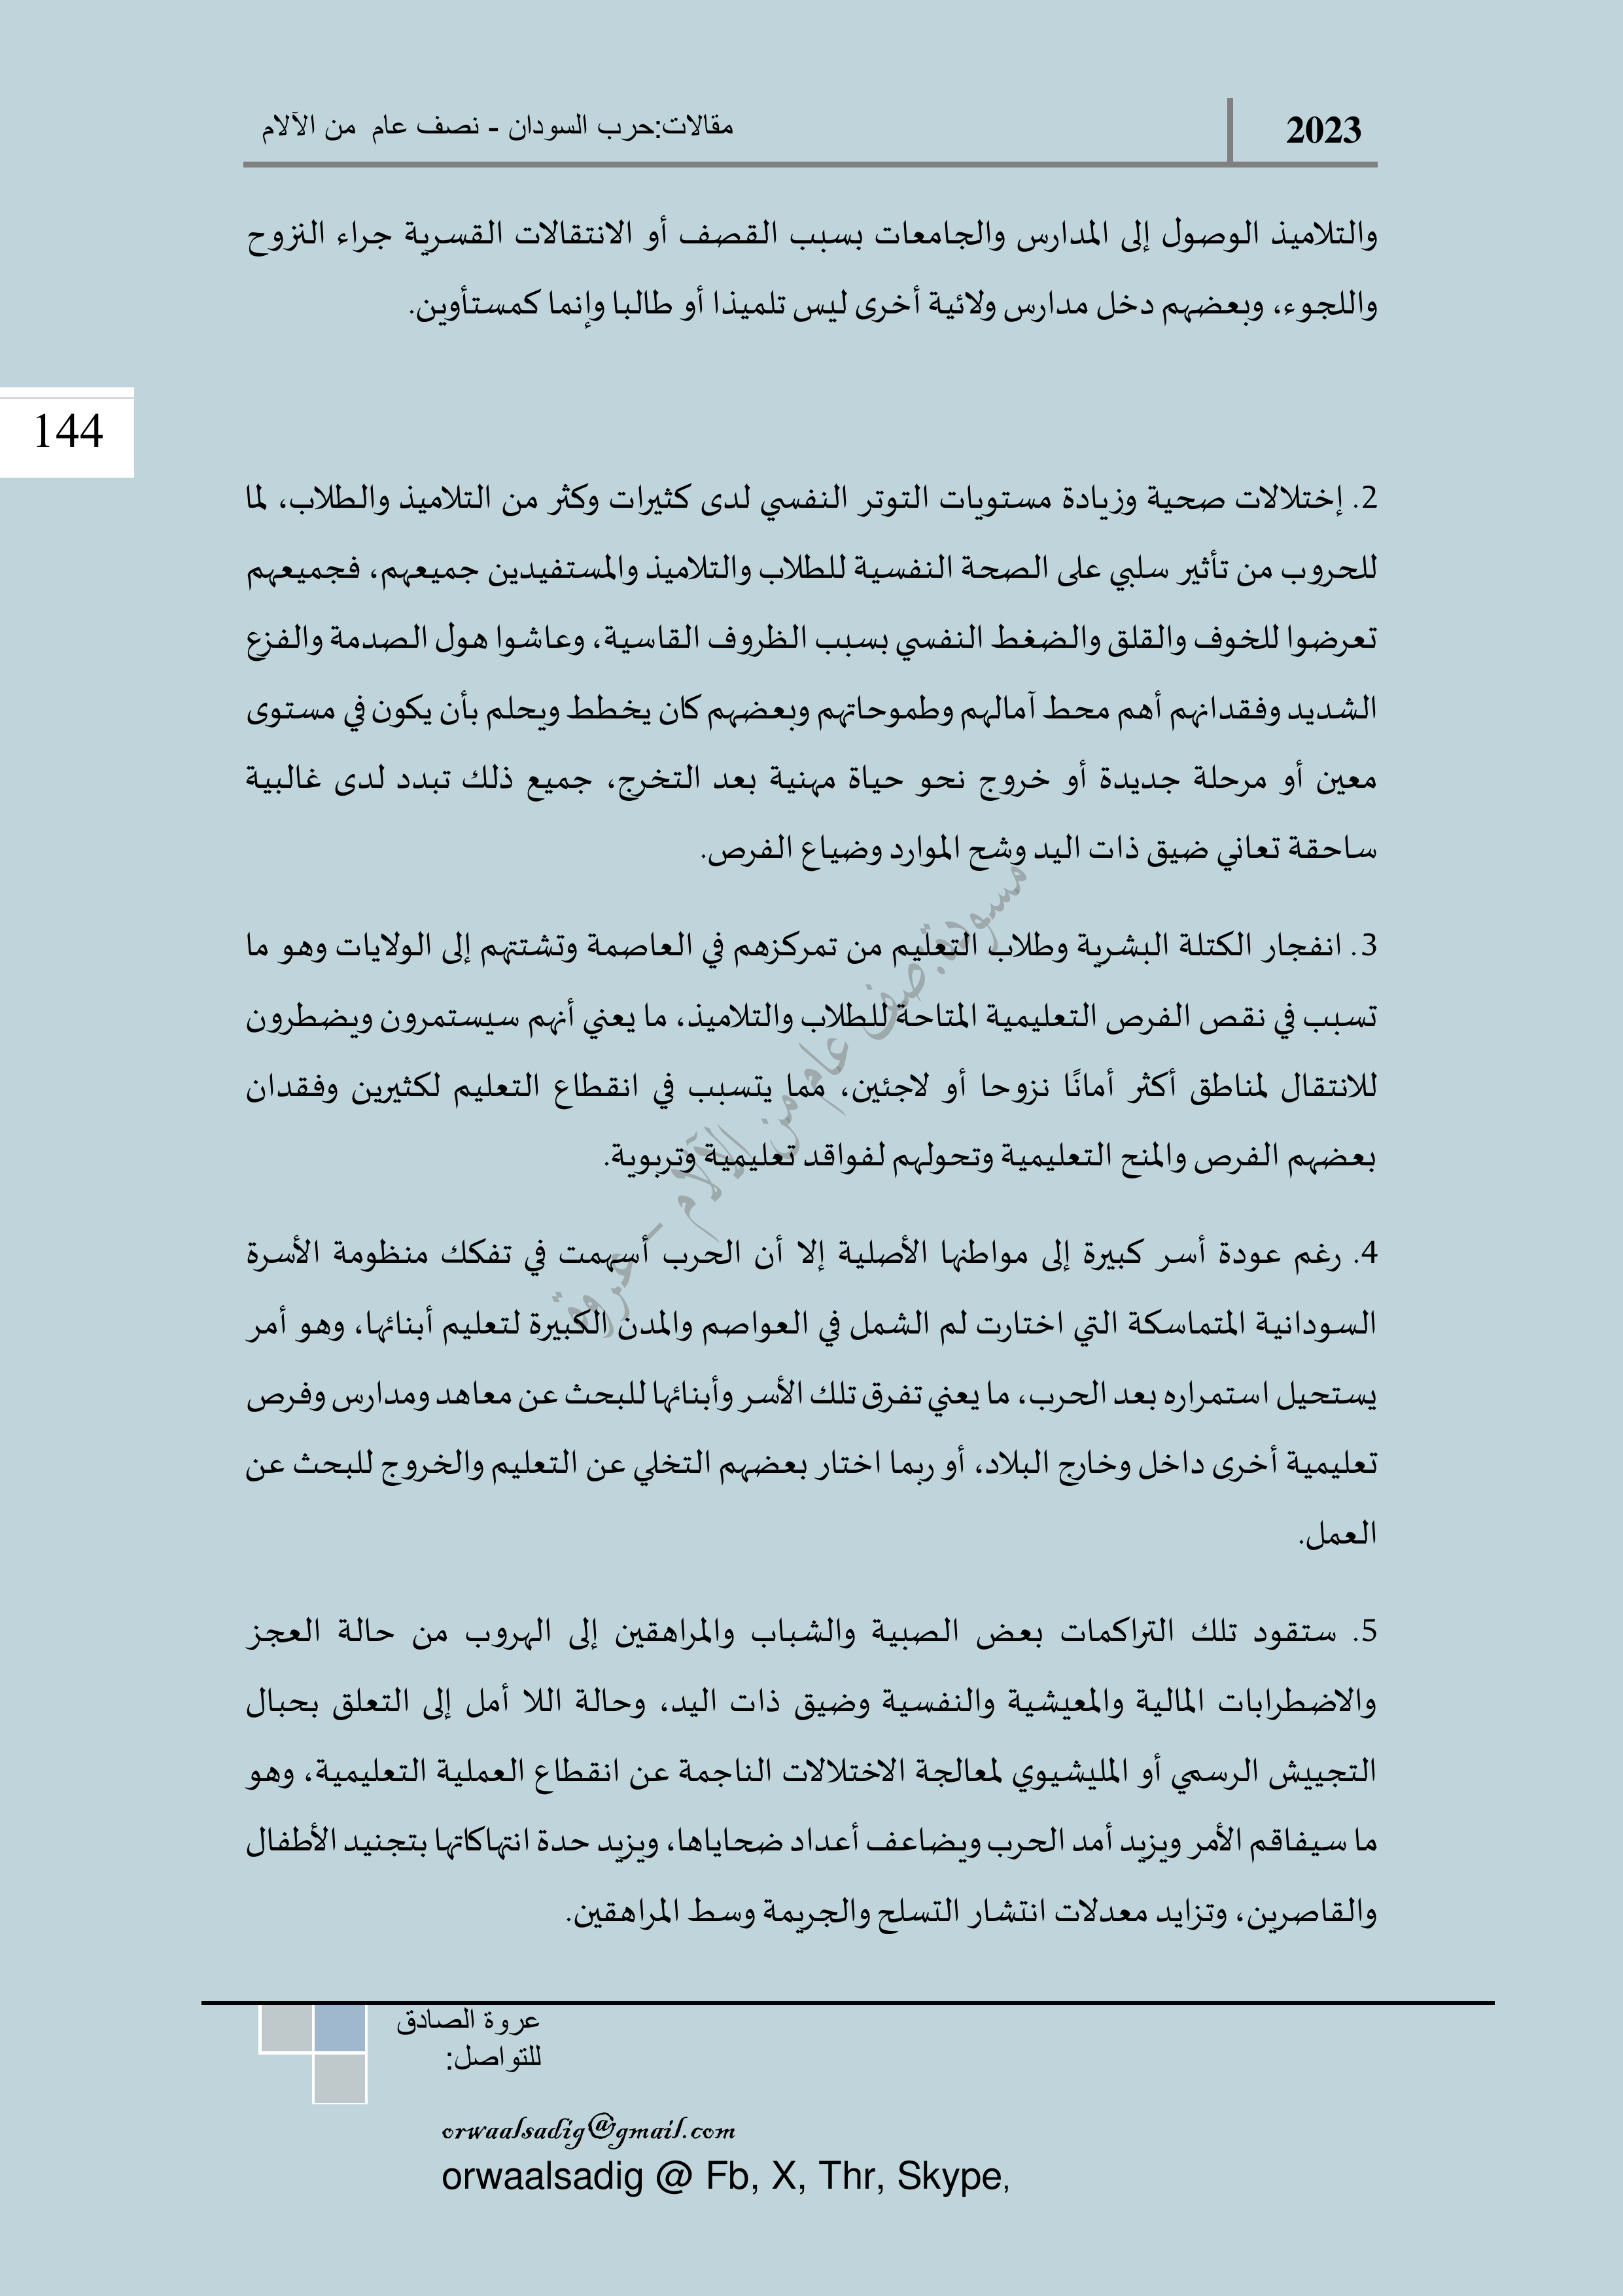 2023
مقالات:حرب السودان - نصف عام من الآلام
والتلاميذ الوصول إلى المدارس والجامعات بسبب القصف أو الانتقالات القسرية جراء النزوح
واللجوء، وبعضهم دخل مدارس ولائية أخرى ليس تلميذا أو طالبا وإنما كمستأوين.
144
2. إختلالات صحية وزيادة مستويات التوتر النفسي لدى كثيرات وكثر من التلاميذ والطلاب، لما
للحروب من تأثير سلبي على الصحة النفسية للطلاب والتلاميذ والمستفيدين جميعهم، فجميعهم
تعرضوا للخوف والقلق والضغط النفسي بسبب الظروف القاسية، وعاشوا هول الصدمة والفزع
الشديد وفقدانهم أهم محط آمالهم وطموحاتهم وبعضهم كان يخطط ويحلم بأن يكون في مستوى
معين أو مرحلة جديدة أو خروج نحو حياة مهنية بعد التخرج، جميع ذلك تبدد لدى غالبية
ساحقة تعاني ضيق ذات اليد وشح الموارد وضياع الفرص.
3. انفجار الكتلة البشرية وطلاب التعليم من تمركزهم في العاصمة وتشتتهم إلى الولايات وهو ما
تسبب في نقص الفرص التعليمية المتاحة للطلاب والتلاميذ، ما يعني أنهم سيستمرون ويضطرون
للانتقال لمناطق أكثر أمانًا نزوحا أو لاجئين، مما يتسبب في انقطاع التعليم لكثيرين وفقدان
بعضهم الفرص والمنح التعليمية وتحولهم لفواقد تعليمية وتربوية.
4. رغم عودة أسر كبيرة إلى مواطنها الأصلية إلا أن الحرب أسهمت في تفكك منظومة الأسرة
السودانية المتماسكة التي اختارت لم الشمل في العواصم والمدن الكبيرة لتعليم أبنائها، وهو أمر
يستحيل استمراره بعد الحرب، ما يعني تفرق تلك الأسر وأبنائها للبحث عن معاهد ومدارس وفرص
تعليمية أخرى داخل وخارج البلاد، أو ربما اختار بعضهم التخلي عن التعليم والخروج للبحث عن
العمل.
5. ستقود تلك التراكمات بعض الصبية والشباب والمراهقين إلى الهروب من حالة العجز
والاضطرابات المالية والمعيشية والنفسية وضيق ذات اليد، وحالة اللا أمل إلى التعلق بحبال
التجييش الرسمي أو المليشيوي لمعالجة الاختلالات الناجمة عن انقطاع العملية التعليمية، وهو
ما سيفاقم الأمر ويزيد أمد الحرب ويضاعف أعداد ضحاياها، ويزيد حدة انتهاكاتها بتجنيد الأطفال
والقاصرين، وتزايد معدلات انتشار التسلح والجريمة وسط المراهقين.
مسودة: عام من الآلام - عروة
عروة الصادق
للتواصل:
orwaalsadig@gmail.com
orwaalsadig @ Fb, X, Thr, Skype,